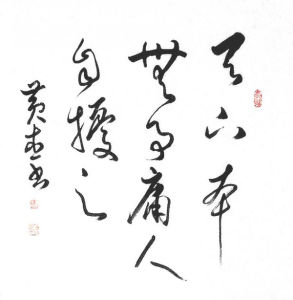 天下本
無事庸人
自擾之
黄书